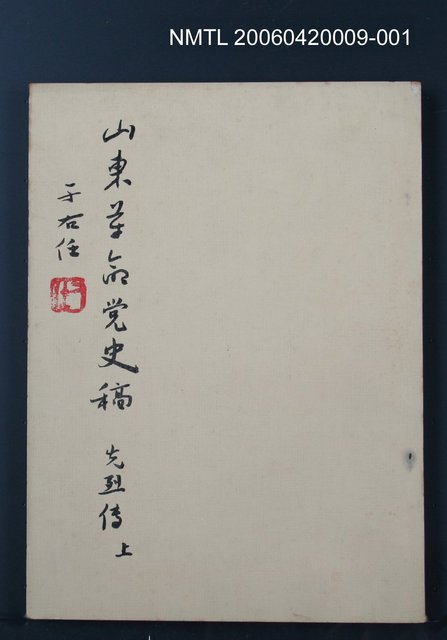 NMTL 20060420009-001
山東革命党史稿 先烈傳 上
于右任